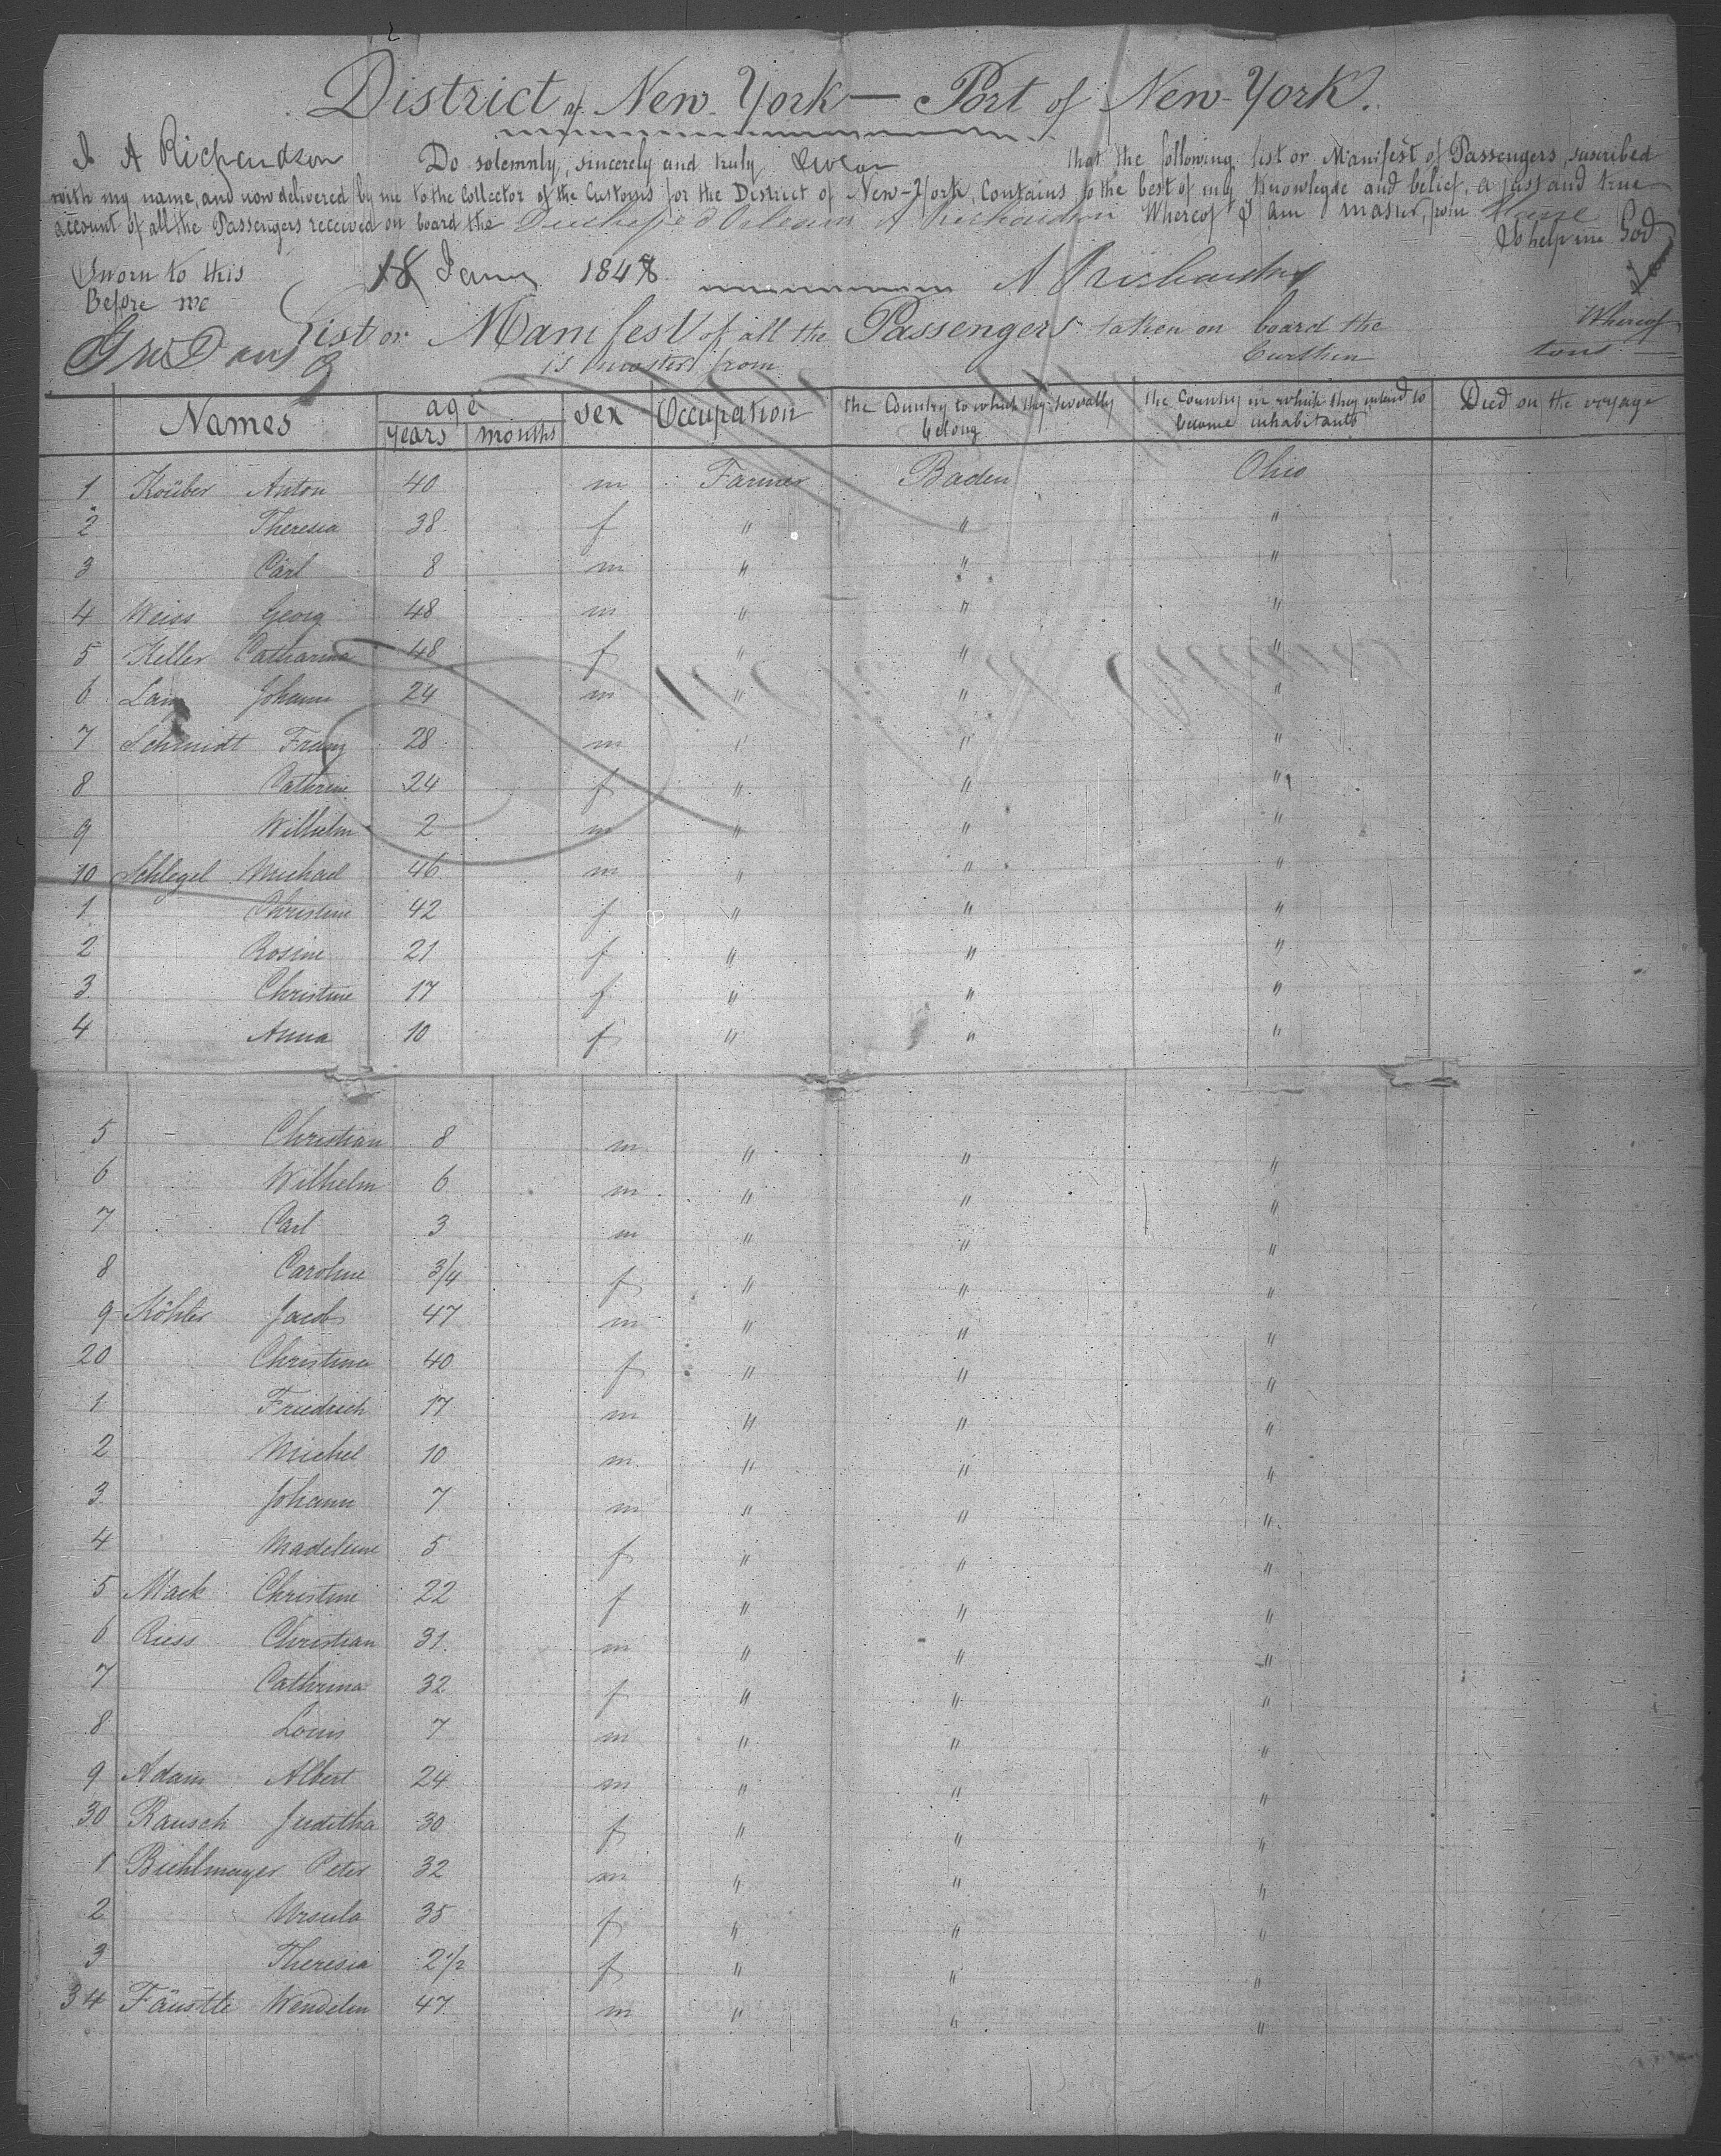 District of New-York — Port of New-York.
I A Richardson Do solemnly, sincerely and truly swear that the following list or Manifest of Passengers, suscribed
with my name, and now delivered by me to the Collector of the Customs for the District of New-York, Contains to the best of my knowlegde and belief, a just and true
account of all the Passengers received on board the Duchesse d'Orleans A Richardson Whereof I am master, from Havre
So help me God
Sworn to this 18 1848 A Richardson
Before me
List or Manifest of all the Passengers taken on board the Whereof
is master from burthen tons
Names age years months sex Occupation the Country to which they severally belong the Country in which they intend to become inhabitants Died on the voyage
1 Koüber Anton 40 m Farmer Baden Ohio
2 Theresia 38 f " " "
3 Carl 8 m " " "
4 Weiss Georg 48 m " " "
5 Keller Catharina 48 f " " "
6 Johann 24 m " " "
7 Schmidt Franz 28 m " " "
8 Cathrine 24 f " " "
9 Wilhelm 2 m " " "
10 Schlegel Michael 46 m " " "
1 Christine 42 f " " "
2 Rosine 21 f " " "
3 Christine 17 f " " "
4 Anna 10 f " " "
5 Christian 8 m " " "
6 Wilhelm 6 m " " "
7 Carl 3 m " " "
8 Caroline 3/4 f " " "
9 Köhler Jacob 47 m " " "
20 Christina 40 f " " "
1 Friedrich 17 m " " "
2 Michel 10 m " " "
3 Johann 7 m " " "
4 Madeleine 5 f " " "
5 Mack Christine 22 f " " "
6 Riess Christian 31 m " " "
7 Cathrina 32 f " " "
8 Louis 7 m " " "
9 Adam Albert 24 m " " "
30 Rausch Juditha 30 f " " "
1 Biehlmayer Peter 32 m " " "
2 Ursula 35 f " " "
3 Theresia 2 1/2 f " " "
34 Fäustle Wendelin 47 m " " "